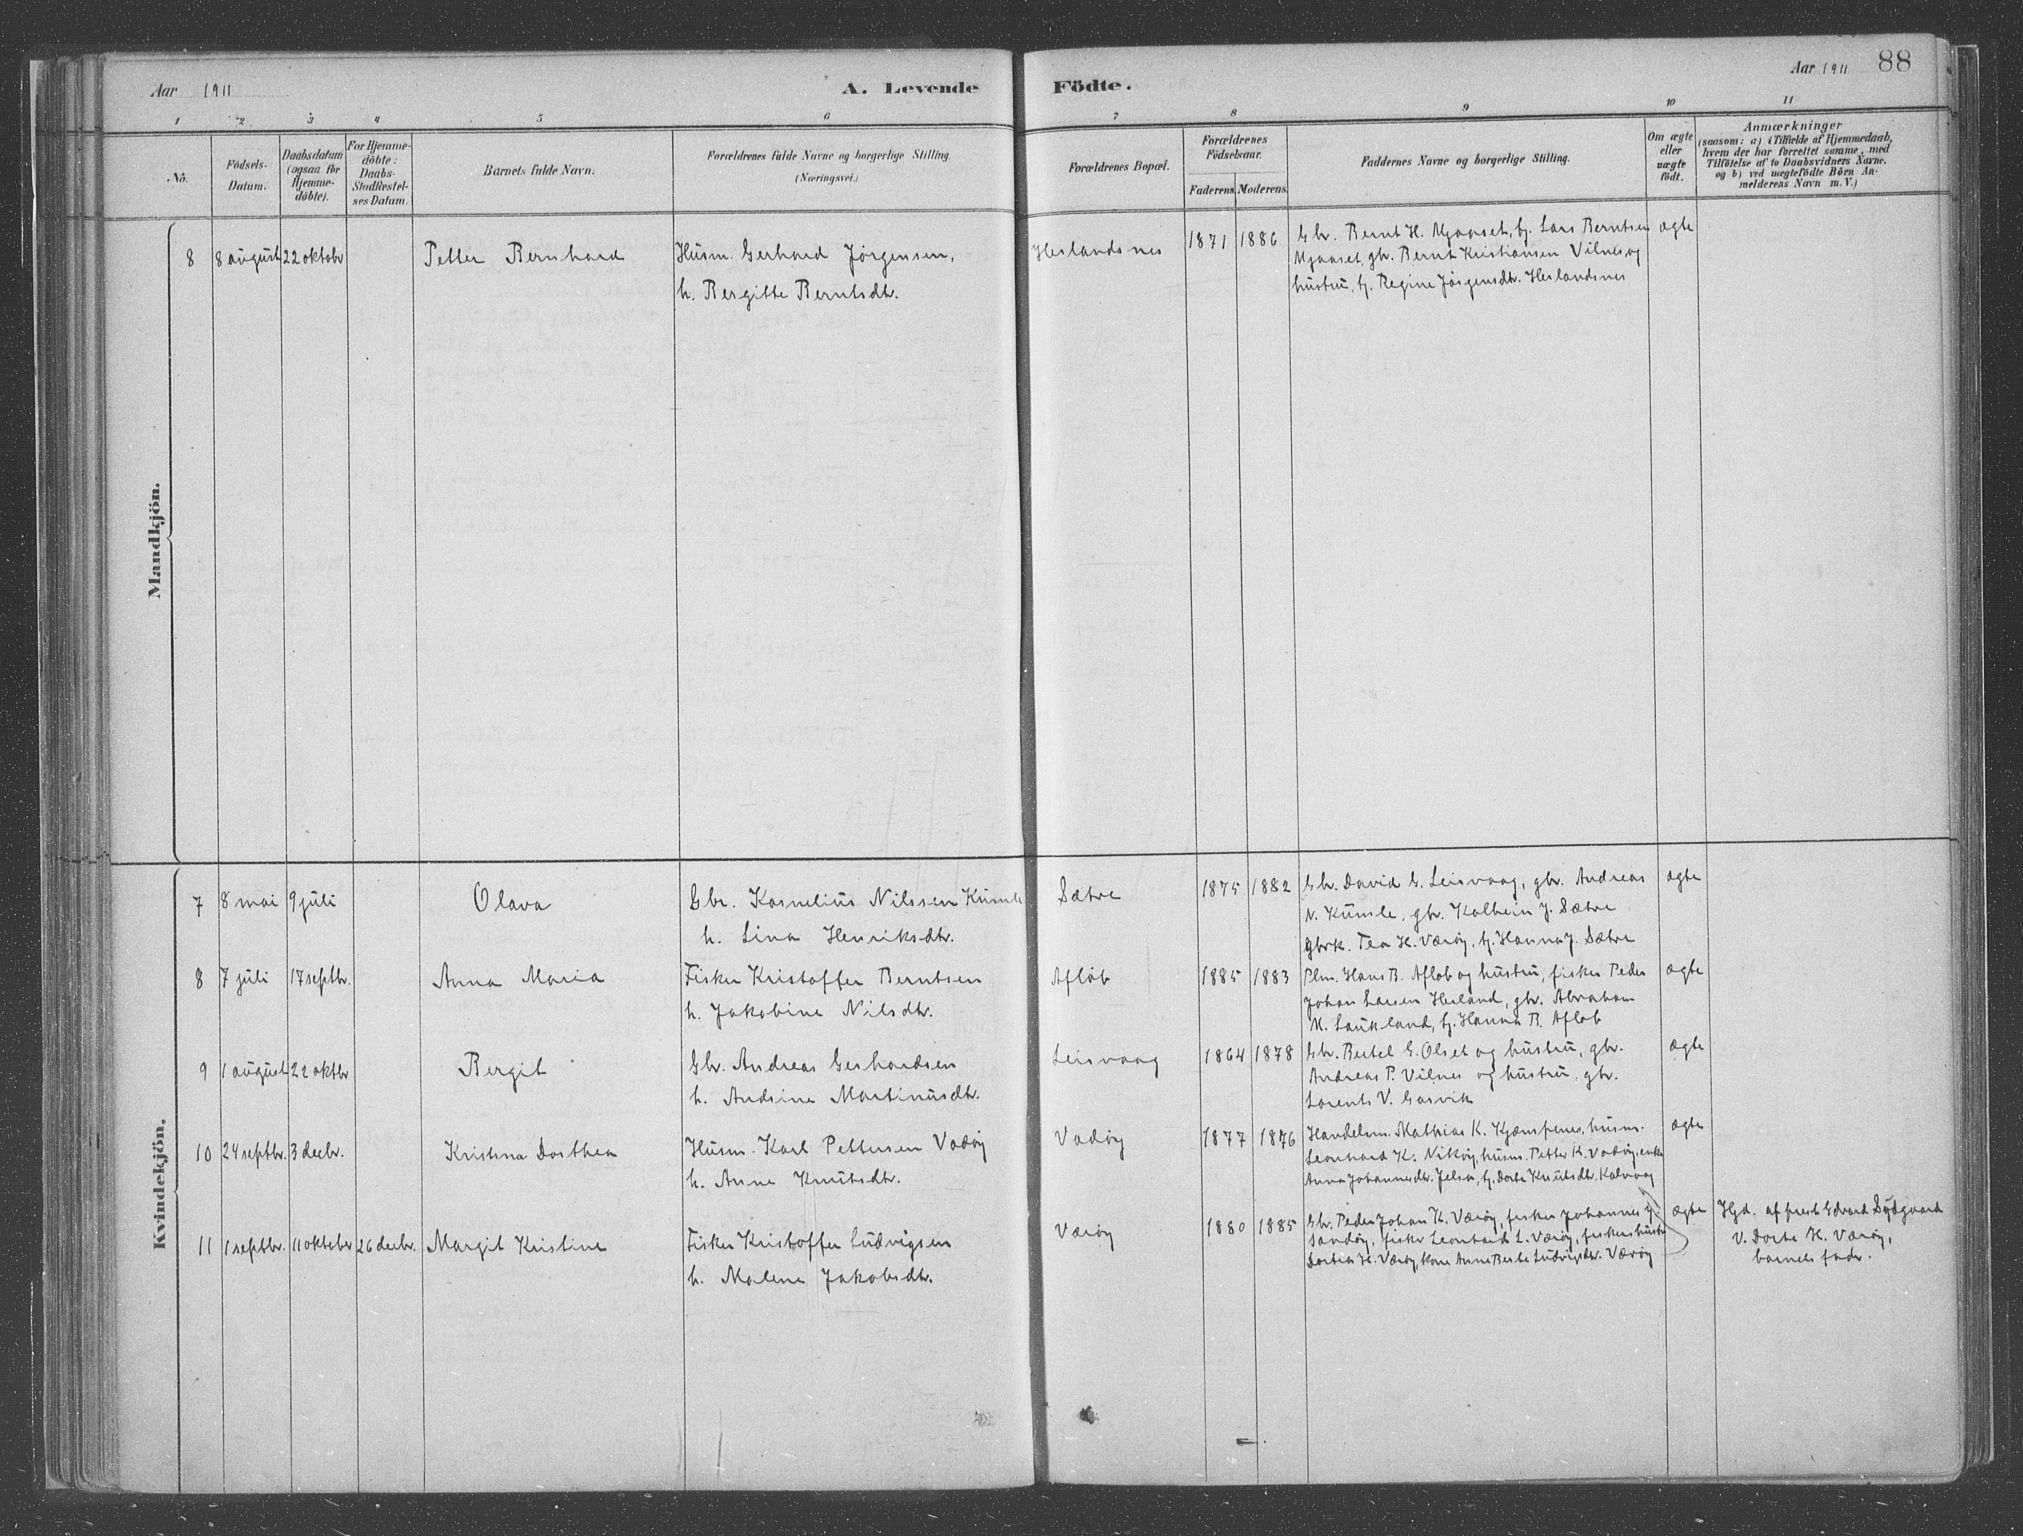 Aar 1911
A. Levende
Födte.
Aar 1911
88
1 2 3 4 5 6 7 8 9 10 11
No.
Födsels-
Datum.
Daabsdatum
(ogsaa for
Hjemme-
döbte).
For Hjemme-
döbte:
Daabs-
Stadfæstel-
ses Datum.
Barnets fulde Navn.
Forældrenes fulde Navne og borgerlige Stilling.
(Næringsvei.)
Forældrenes Bopæl.
Forældrenes
Födselsaar.
Faderens. Moderens.
Faddernes Navne og borgerlige Stilling.
Om ægte
eller
uægte
födt.
Anmærkninger
(saasom: a) i Tilfælde af Hjemmedaab,
hvem der har forrettet samme, med
Tilföielse af to Daabsvidners Navne,
og b) ved uægtefödte Börn An-
melderens Navn m. V.)
Mandkjön.
8 8 august 22 oktobr Petter Bernhard
Husm. Gerhard Jørgensen,
h. Bergitte Berntsdtr.
Heslandsnes
1871 1886
Gbr. Bernt H. Myaaset, fj. Lars Berntsen
Myaaset, gbr. Bernt Kristiansen Vilnes og
hustru, fj. Regine Jørgensdtr. Heslandsnes
ægte
Kvindekjön.
7 8 mai 9 juli Olava
Gbr. Kornelius Nilssen Kumle
h. Lina Henriksdtr.
Sætre
1875 1882
Gbr. David G. Leisvaag, gbr. Andreas
N. Kumle, gbr. Kolbein J. Sætre
gbrk. Tea H. Værøy, fj. Hanna J. Sætre
ægte
8 7 juli 17 septbr. Anna Maria
Fisker Kristoffer Berntsen
h. Jakobine Nilsdtr.
Afløb
1885 1883
Plm. Hans B. Afløb og hustru, fisker Peder
Johan Larsen Hesland, gbr. Abraham
M. Laukland, fj. Hanna B. Afløb
ægte
9 1 august 22 oktbr Bergit
Gbr. Andreas Gerhardsen
h. Andrine Martinusdtr.
Leisvaag
1864 1878
Gbr. Bertel G. Olset og hustru, gbr.
Andreas P. Vilnes og hustru, gbr.
Lorents V. Gasvik
ægte
10 24 septbr. 3 decbr. Kristina Dorthea
Husm. Karl Pettersen Vadøy
h. Anne Knutsdtr.
Vadøy
1877 1876
Handelsm. Mathias K. Kjempenes, husm.
Leonhard K. Nikøy, husm. Petter K. Vadøy, enke
Anna Johannesdtr. Jelsa, fj. Dorte Knutsdtr. Kalvaag
ægte
11 1 septbr. 11 oktober 26 decbr. Margit Kristine
Fisker Kristoffer Ludvigsen
h. Malene Jakobsdtr.
Værøy
1880 1885
Gbr. Peder Johan K. Værøy, fisker Johannes J.
Sandøy, fisker Leonhard L. Værøy, fiskershustru
Dortea H. Værøy, kone Anne Berte Ludvigsdtr. Værøy
ægte
Hjd. af prest Edvard
V. Dorte H. Værøy,
barnets fadr.